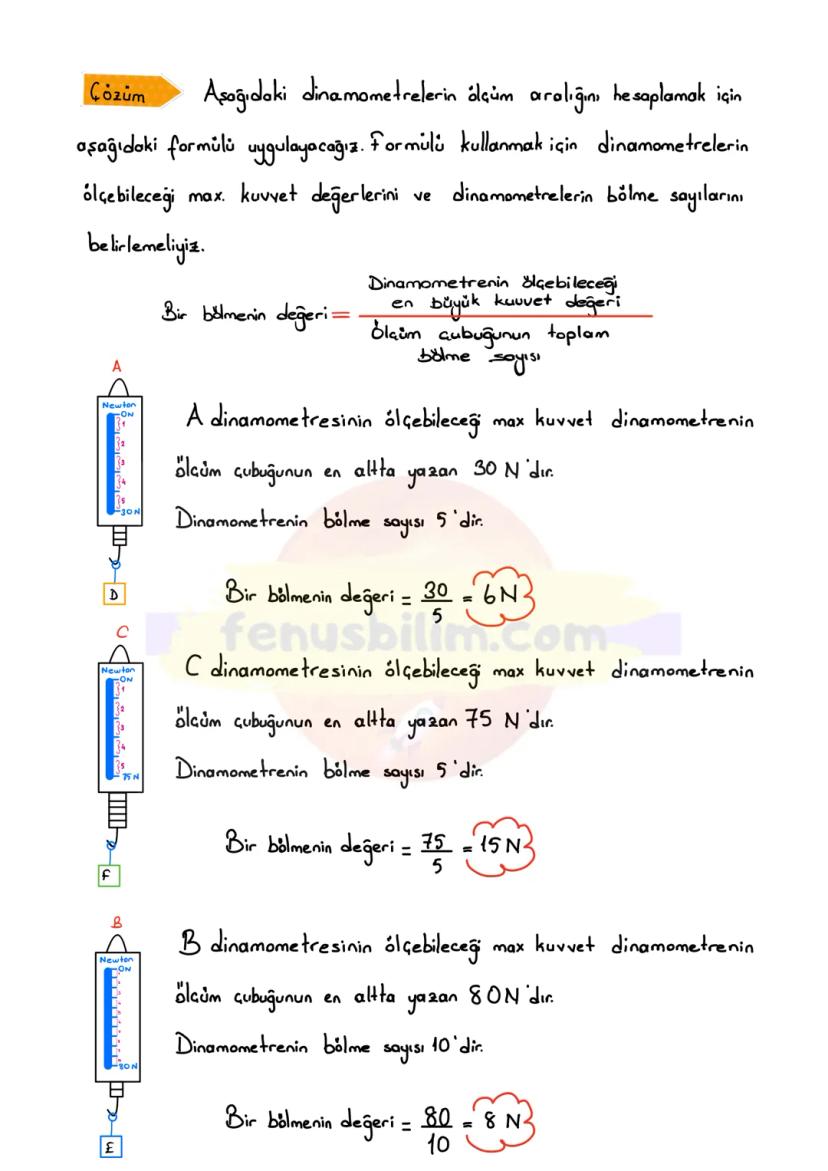 Çözüm Aşağıdaki dinamometrelerin ölçüm aralığını hesaplamak için
aşağıdaki formülü uygulayacağız. Formülü kullanmak için dinamometrelerin
ölçebileceği max. kuvvet değerlerini ve dinamometrelerin bölme sayılarını
belirlemeliyiz.
Dinamometrenin ölçebileceği
en büyük kuvvet değeri
Bir bölmenin değeri =
Ölçüm çubuğunun toplam
bölme sayısı
A
Newton
0N
1
2
3
4
5
30N
D
A dinamometresinin ölçebileceği max kuvvet dinamometrenin
ölçüm çubuğunun en altta yazan 30 N'dır.
Dinamometrenin bölme sayısı 5'dir.
Bir bölmenin değeri = 30/5 = 6N
fenusbilim.com
C
Newton
0N
1
2
3
4
5
75N
F
C dinamometresinin ölçebileceği max kuvvet dinamometrenin
ölçüm çubuğunun en altta yazan 75 N'dır.
Dinamometrenin bölme sayısı 5'dir.
Bir bölmenin değeri = 75/5 = 15N
B
Newton
0N
80N
E
B dinamometresinin ölçebileceği max kuvvet dinamometrenin
ölçüm çubuğunun en altta yazan 80N'dır.
Dinamometrenin bölme sayısı 10'dir.
Bir bölmenin değeri = 80/10 = 8 N